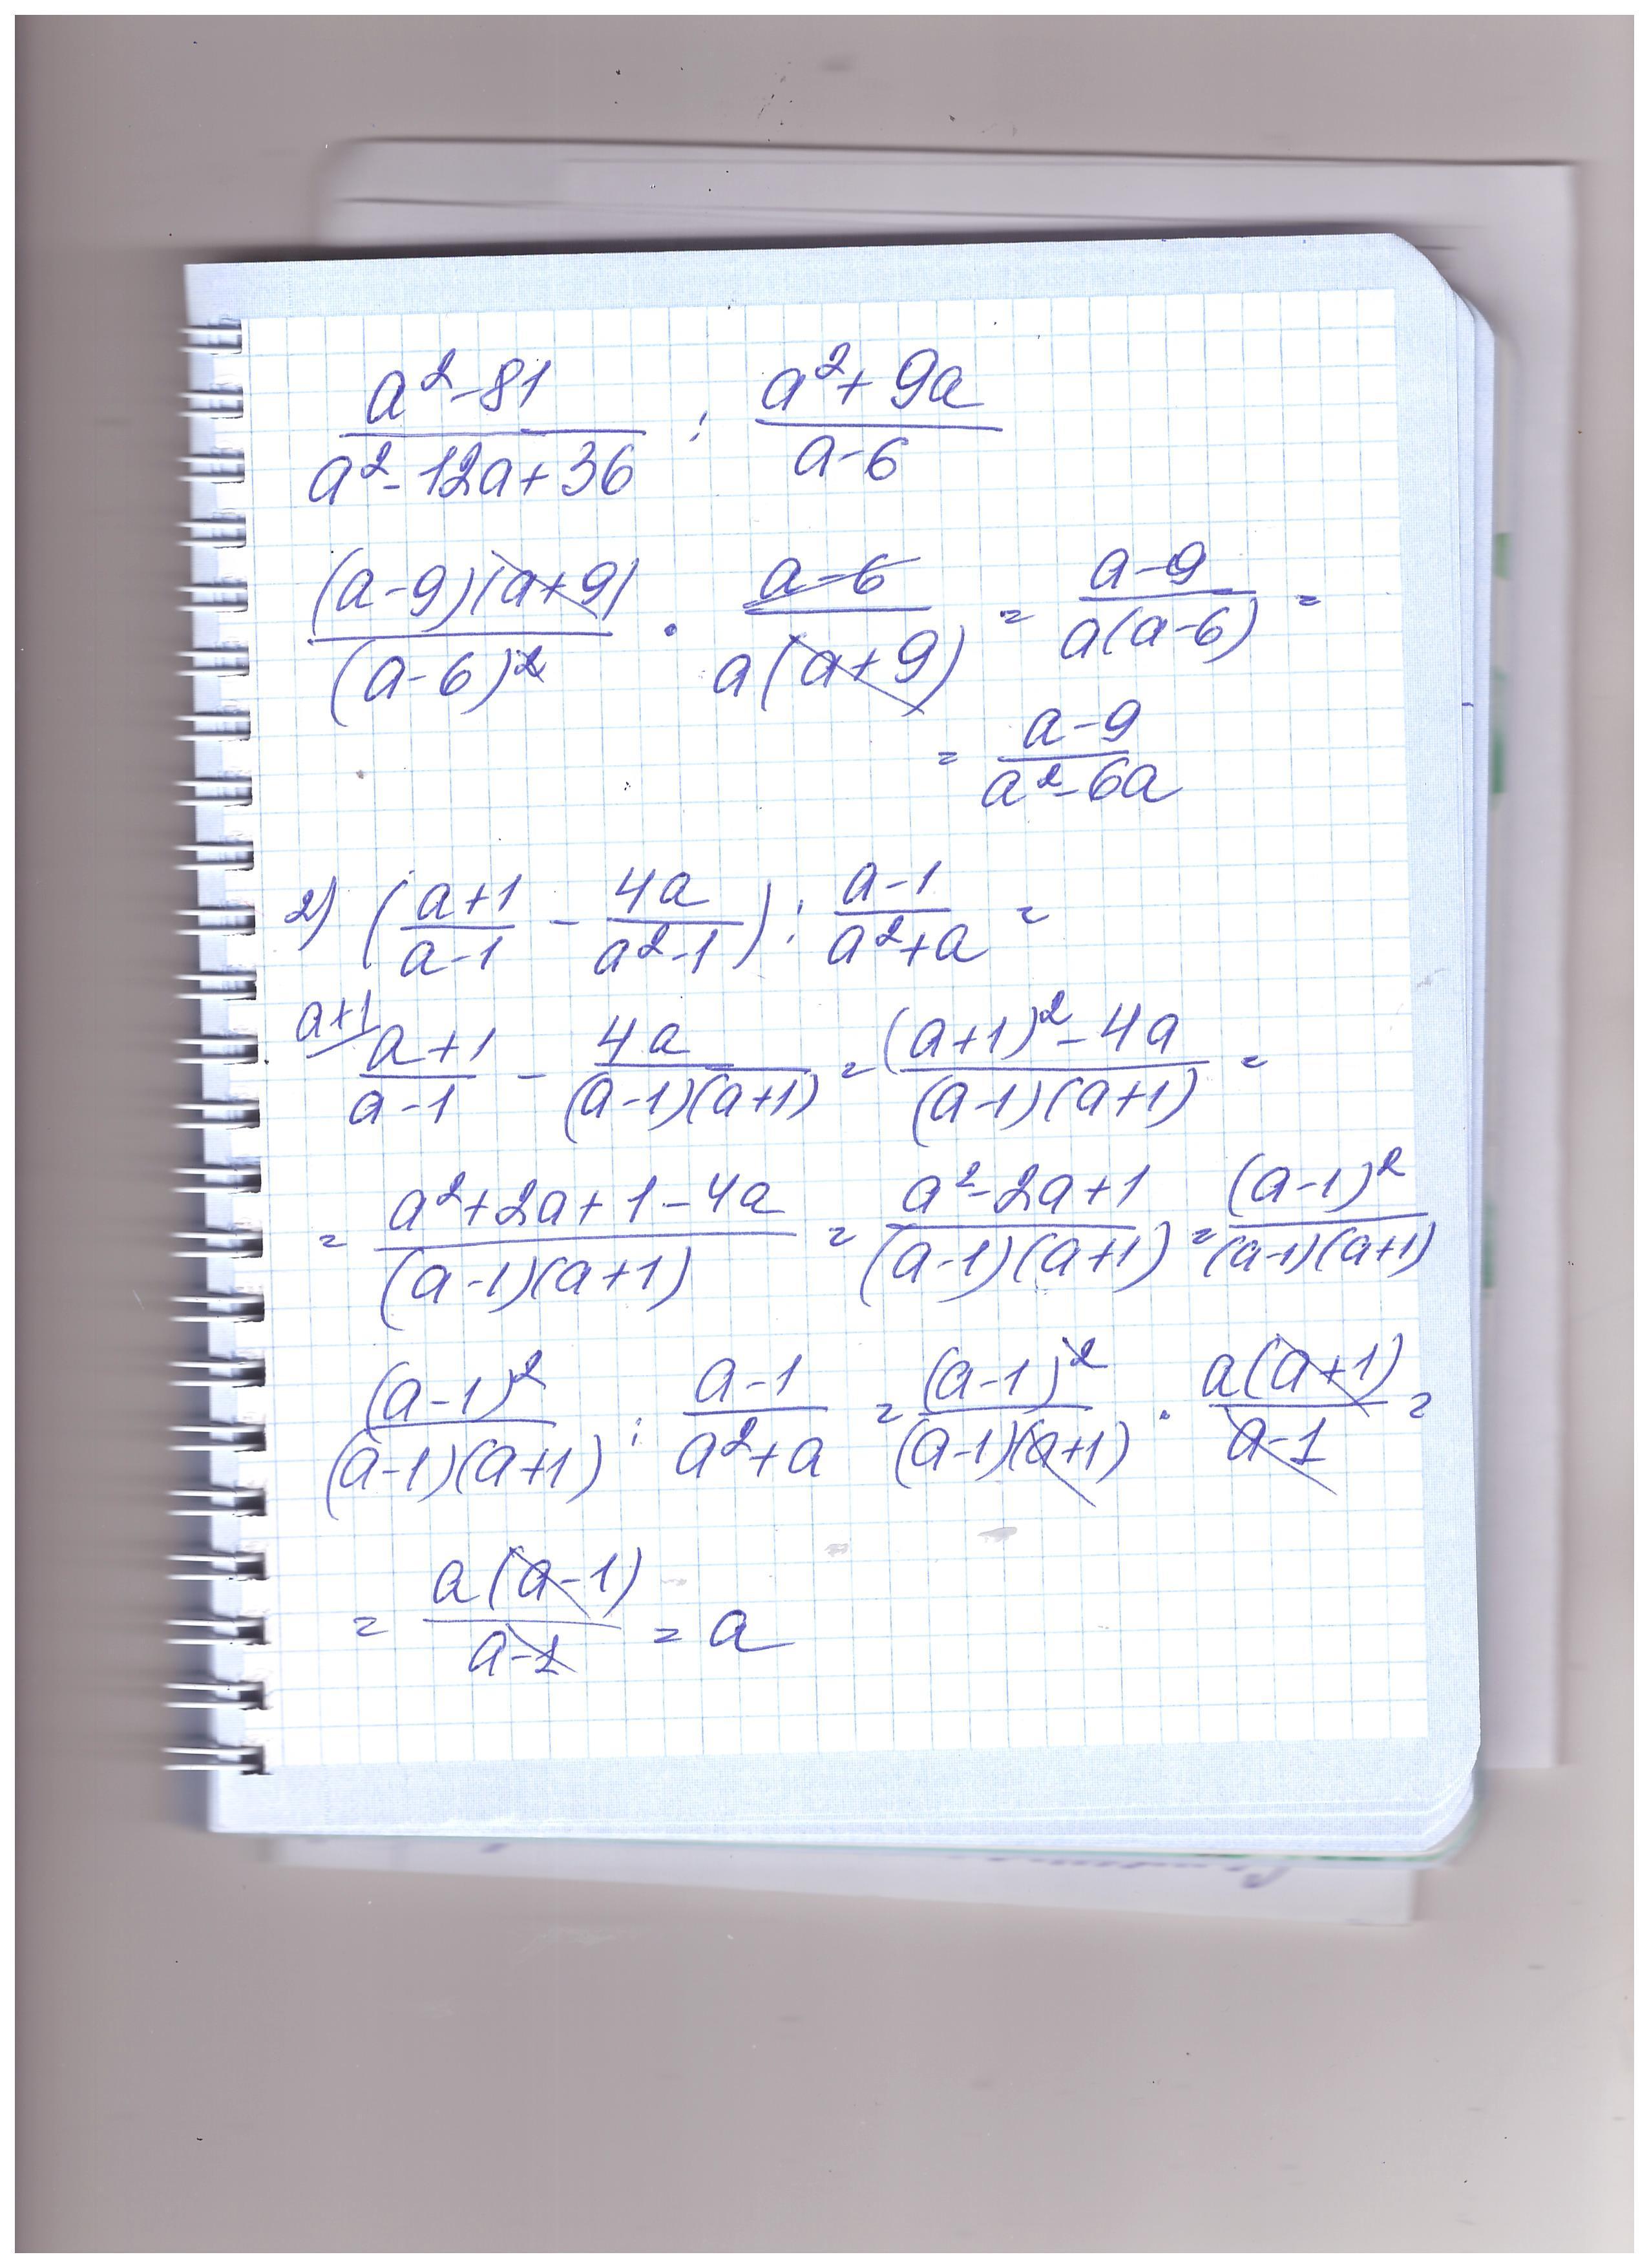 (a² - 81)/(a² - 12a + 36) : (a² + 9a)/(a - 6)
((a - 9)(a + 9))/((a - 6)²) · (a - 6)/(a(a + 9)) = (a - 9)/(a(a - 6)) =
= (a - 9)/(a² - 6a)
2) ((a + 1)/(a - 1) - 4a/(a² - 1)) : (a - 1)/(a² + a) =
a+1 (a + 1)/(a - 1) - 4a/((a - 1)(a + 1)) = ((a + 1)² - 4a)/((a - 1)(a + 1)) =
= (a² + 2a + 1 - 4a)/((a - 1)(a + 1)) = (a² - 2a + 1)/((a - 1)(a + 1)) = (a - 1)²/((a - 1)(a + 1))
(a - 1)²/((a - 1)(a + 1)) : (a - 1)/(a² + a) = (a - 1)²/((a - 1)(a + 1)) · (a(a + 1))/(a - 1) =
= (a(a - 1))/(a - 1) = a